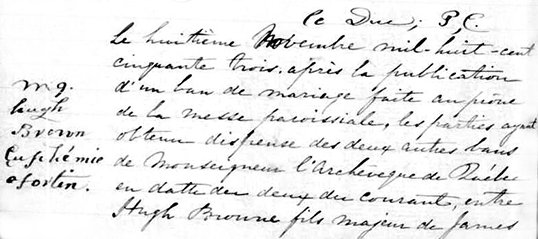 Le Duc, P. C
Le huitième Novembre mil-huit-cent
cinquante trois, après la publication
d'un ban de mariage faite au prône
de la messe paroissiale, les parties ayant
obtenu dispense des deux autres bans
de Monseigneur l'Archevêque de Québec
en datte du deux du courant, entre
Hugh Browne fils majeur de James
m 9.
hugh
Brown
Euphémie
Fortin.